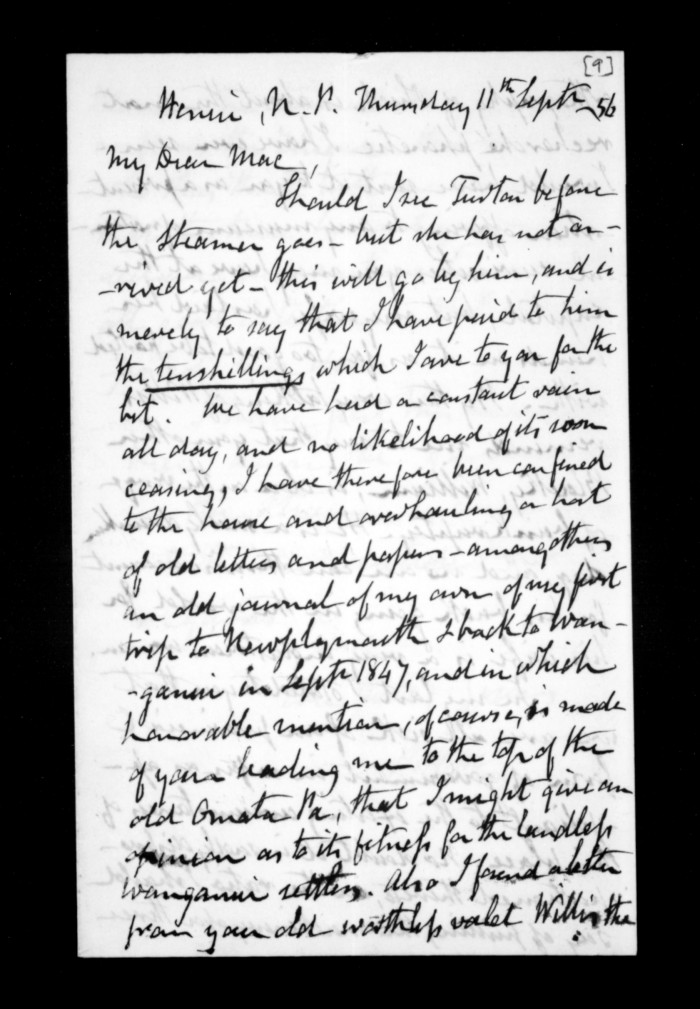 [9]
Henui, N. P. Thursday 11th Septr 56
My Dear Mac,
Should I see Turton before
the Steamer goes - but she has not ar-
-rived yet - this will go by him, and is
merely to say that I have paid to him
the tenshillings which I owe to you for the
bit. We have had a constant rain
all day, and no likelihood of its soon
ceasing, I have therefore been confined
to the house and overhauling a host
of old letters and papers - among others
an old journal of my own of my first
trip to Newplymouth & back to Wan-
-ganui in Septr 1847, and in which
honorable mention, of course, is made
of your leading me to the top of the
old Omata Pa, that I might give an
opinion as to its fitness for the landless
Wanganui settlers. Also I found a letter
from your old worthless valet Willis the